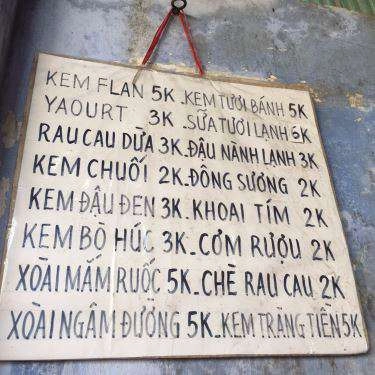 KEM FLAN 5K_KEM TƯƠI BÁNH 5K
YAOURT 3K_SỮA TƯƠI LẠNH 6K
RAU CAU DỪA 3K_ĐẬU NÀNH LẠNH 3K
KEM CHUỐI 2K_ĐÔNG SƯƠNG 2K
KEM ĐẬU ĐEN 3K_KHOAI TÍM 2K
KEM BÒ HÚC 3K_CƠM RƯỢU 2K
XOÀI MẮM RUỐC 5K_CHÈ RAU CAU 2K
XOÀI NGÂM ĐƯỜNG 5K_KEM TRÀNG TIỀN 5K